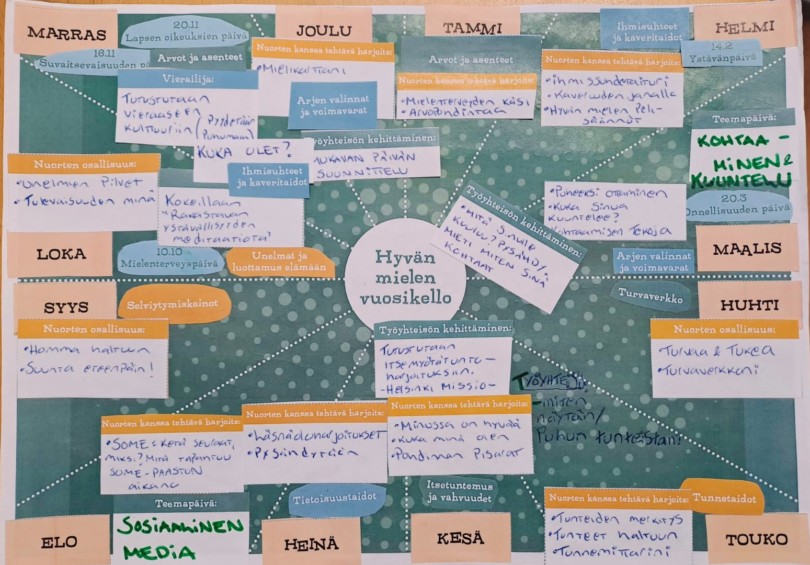 MARRAS
20.11
Lapsen oikeuksien päivä
16.11
Suvaitsevaisuuden päivä
Arvot ja asenteet
Vierailija:
Tutustutaan
vieraaseen
kulttuuriin
KUKA OLET?
Ihmissuhteet
ja kaveritaidot
JOULU
Nuorten kanssa tehtävä harjoite:
• Mielikaitiani
Arjen valinnat
ja voimavarat
Työyhteisön kehittäminen:
MUKAVAN PÄIVÄN
SUUNNITTELU
TAMMI
Arvot ja asenteet
Nuorten kanssa tehtävä harjoite:
• Mielenterveyden käsi
• Arvopohdintaa
Ihmissuhteet
ja kaveritaidot
HELMI
14.2
Ystävänpäivä
Nuorten kanssa tehtävä harjoite:
• ihmissuhdetaituri
• Kaveruuden janalla
• Hyvän mielen peli-
säännöt
Teemapäivä:
KOHTAA-
MINEN &
KUUNTELU
20.3
Onnellisuuden päivä
• Puheeksi ottaminen
• Kuka sinua
kuuntelee?
• Kohtaamisen tekoja
Arjen valinnat
ja voimavarat
MAALIS
Työyhteisön kehittäminen:
• Mitä sinulle
kuuluu? Pysähdy.
MIETI MITEN SINÄ
KOHTAAT
Nuorten osallisuus:
• Unelmien Pilvet
• Tulevaisuuden minä
Kokeillaan
"Rakastavan
ystävällisyyden
meditaatiota"
LOKA
10.10
Mielenterveyspäivä
Unelmat ja
luottamus elämään
Hyvän
mielen
vuosikello
SYYS
Selviytymiskeinot
Nuorten osallisuus:
• Homma haltuun
• Suunta eteenpäin!
Turvaverkko
HUHTI
Nuorten osallisuus:
• Turvaa & Tukea
• Turvaverkkoni
Työyhteisön kehittäminen:
Tutustutaan
itsemyötätunto-
harjoituksiin.
-Helsinki Missio-
TYÖYHTEISÖ
-miten
näytän/
Puhun tunteistani
Nuorten kanssa tehtävä harjoite:
• SOME: Ketä seuraat,
miksi? Mitä tapahtuu
SOME-PAASTON
aikana
Teemapäivä:
SOSIAALINEN
MEDIA
ELO
Nuorten kanssa tehtävä harjoite:
• Läsnäoloharjoitukset
• Pysähdytään
Tietoisuustaidot
HEINÄ
Nuorten kanssa tehtävä harjoite:
• Minussa on hyvää
• Kuka minä olen
• Pohdinnan Pisarat
Itsetuntemus
ja vahvuudet
KESÄ
Nuorten kanssa tehtävä harjoite:
• Tunteiden merkitys
• Tunteet haltuun
• Tunnemittarini
Tunnetaidot
TOUKO